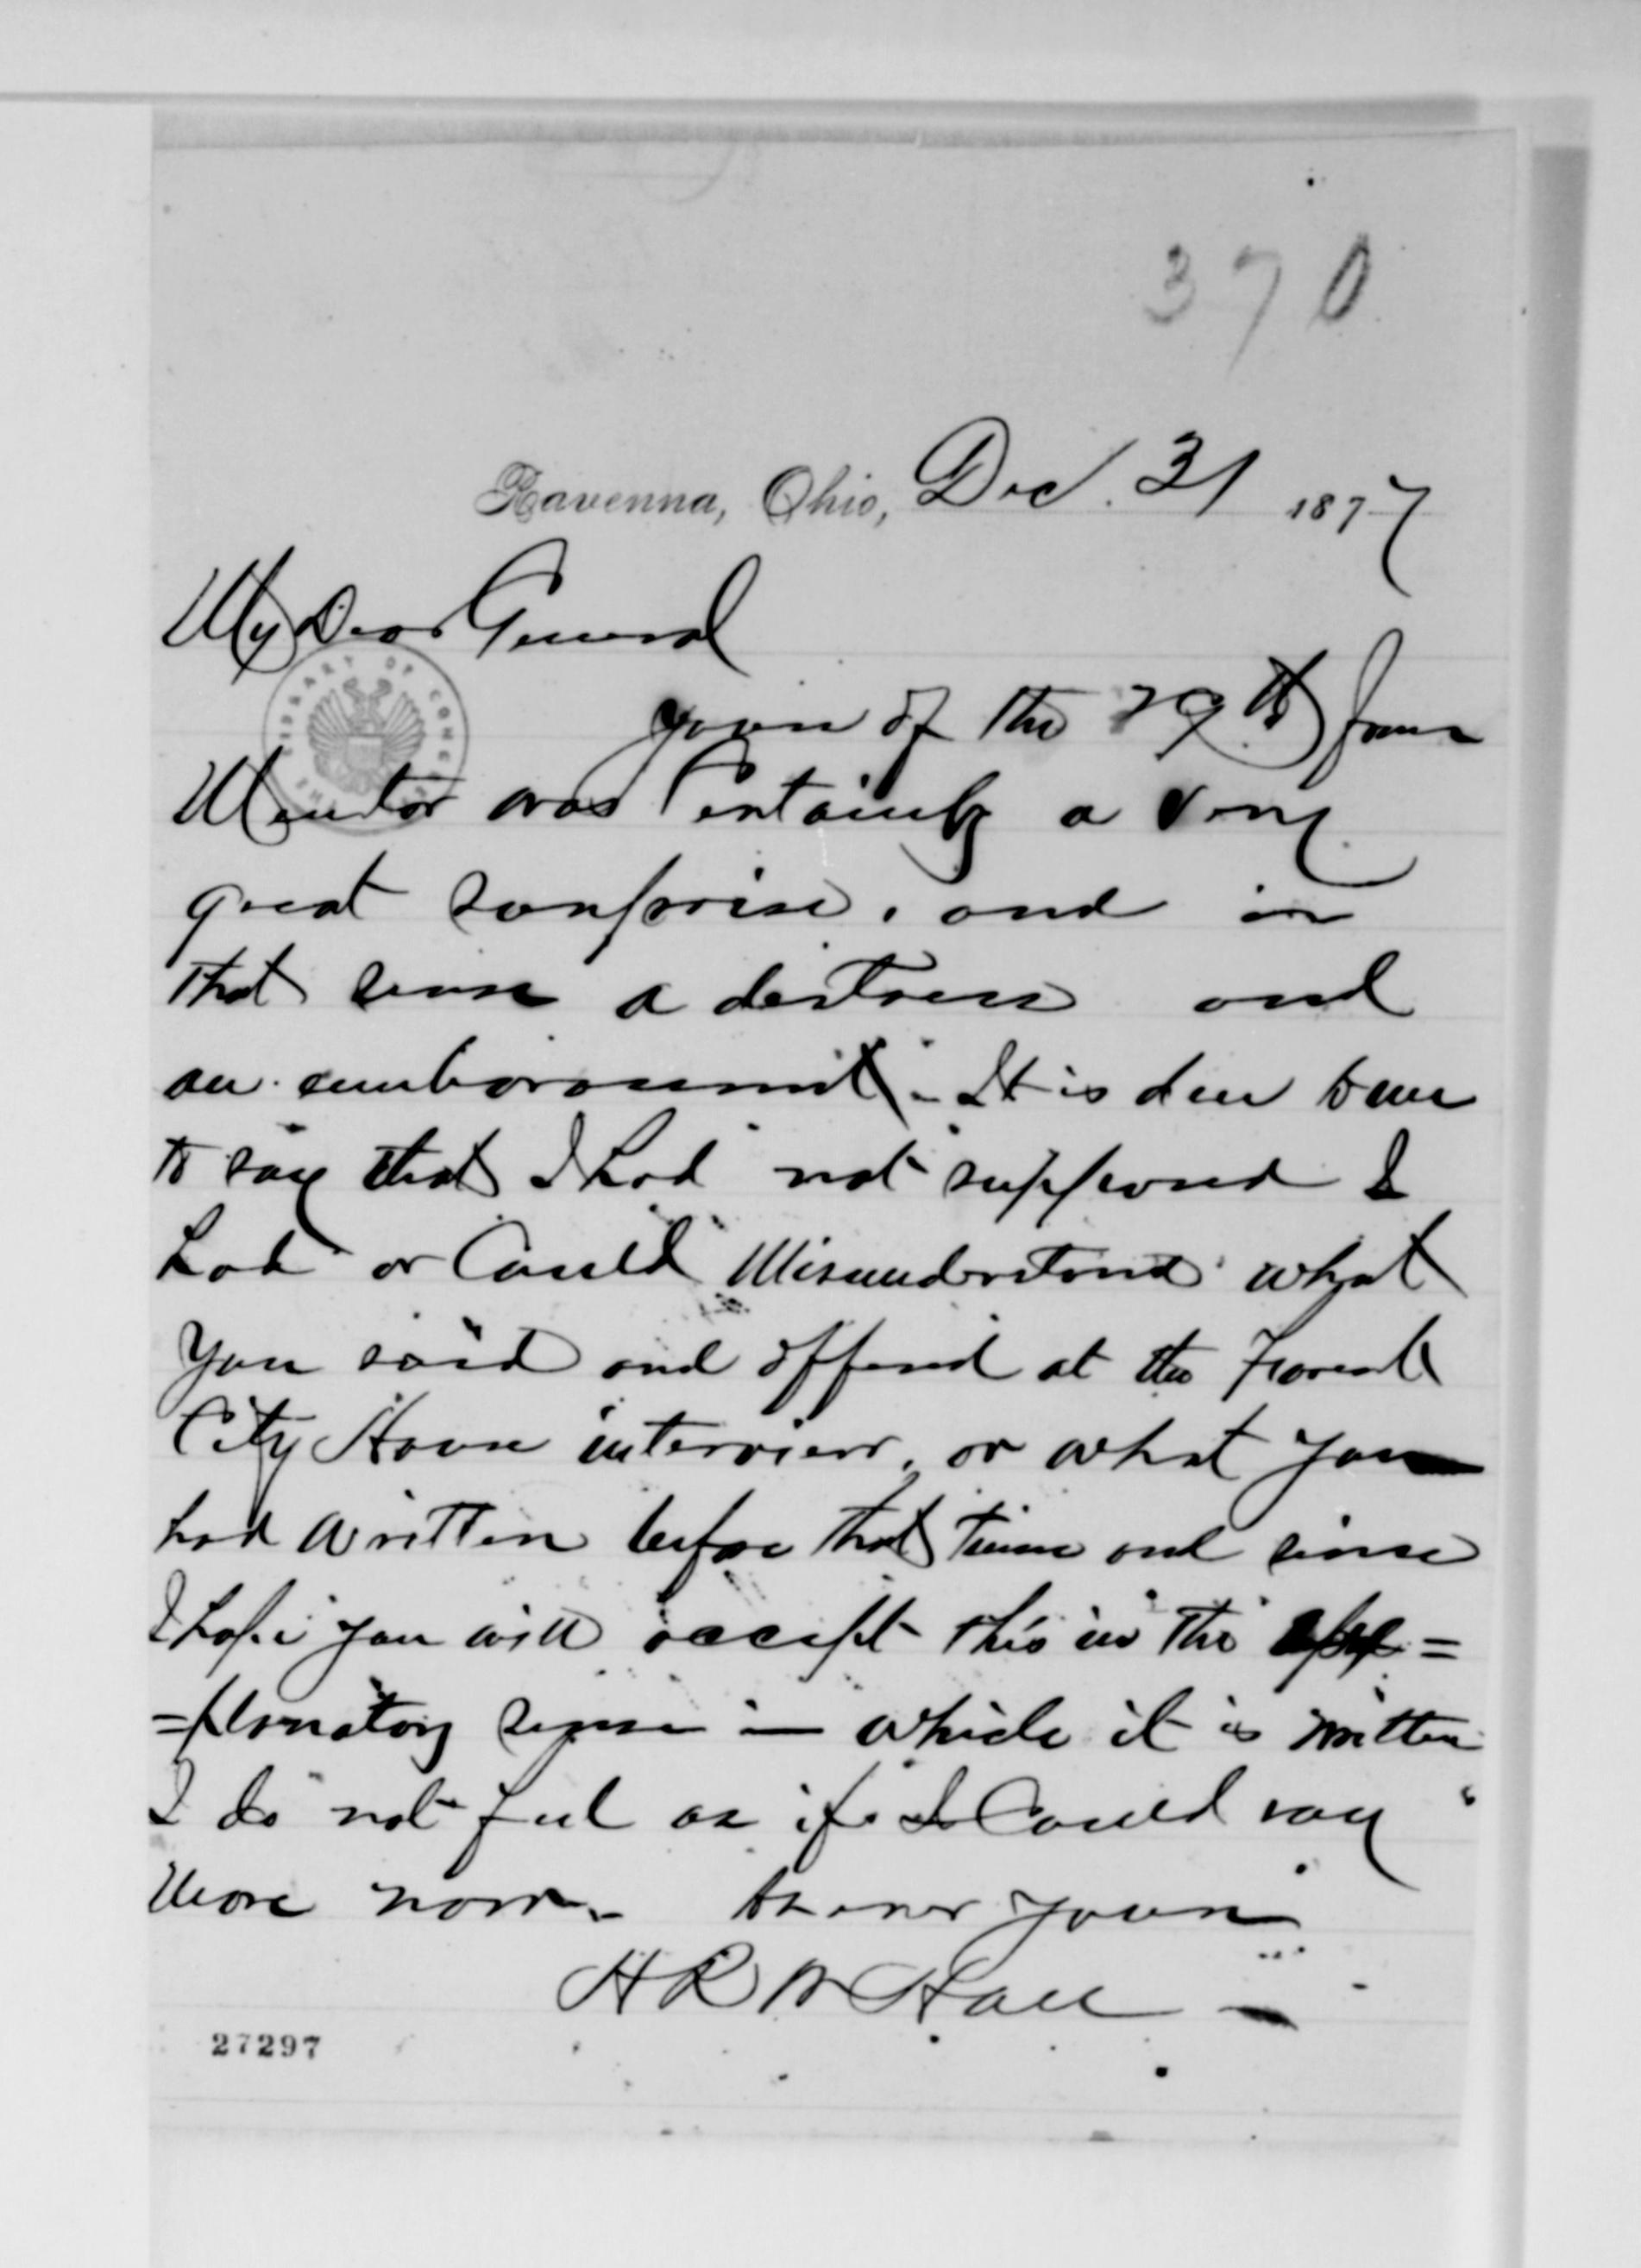 370
Ravenna, Ohio, Dec. 31 1877
My Dear General
yours of the 29th from
Mentor was Certainly a very
great surprise, and in
that sense a distress and
an embarrassment. It is due to me
to say that I had not supposed I
had or Could Misunderstand what
you said and offered at the Forest
City House interview, or what you
had written before that time and since
I hope you will accept this in the =
=planatory sense in which it is written
I do not feel as if I Could say
More now. as ever yours
Hall
27297
LIBRARY OF CONGRESS